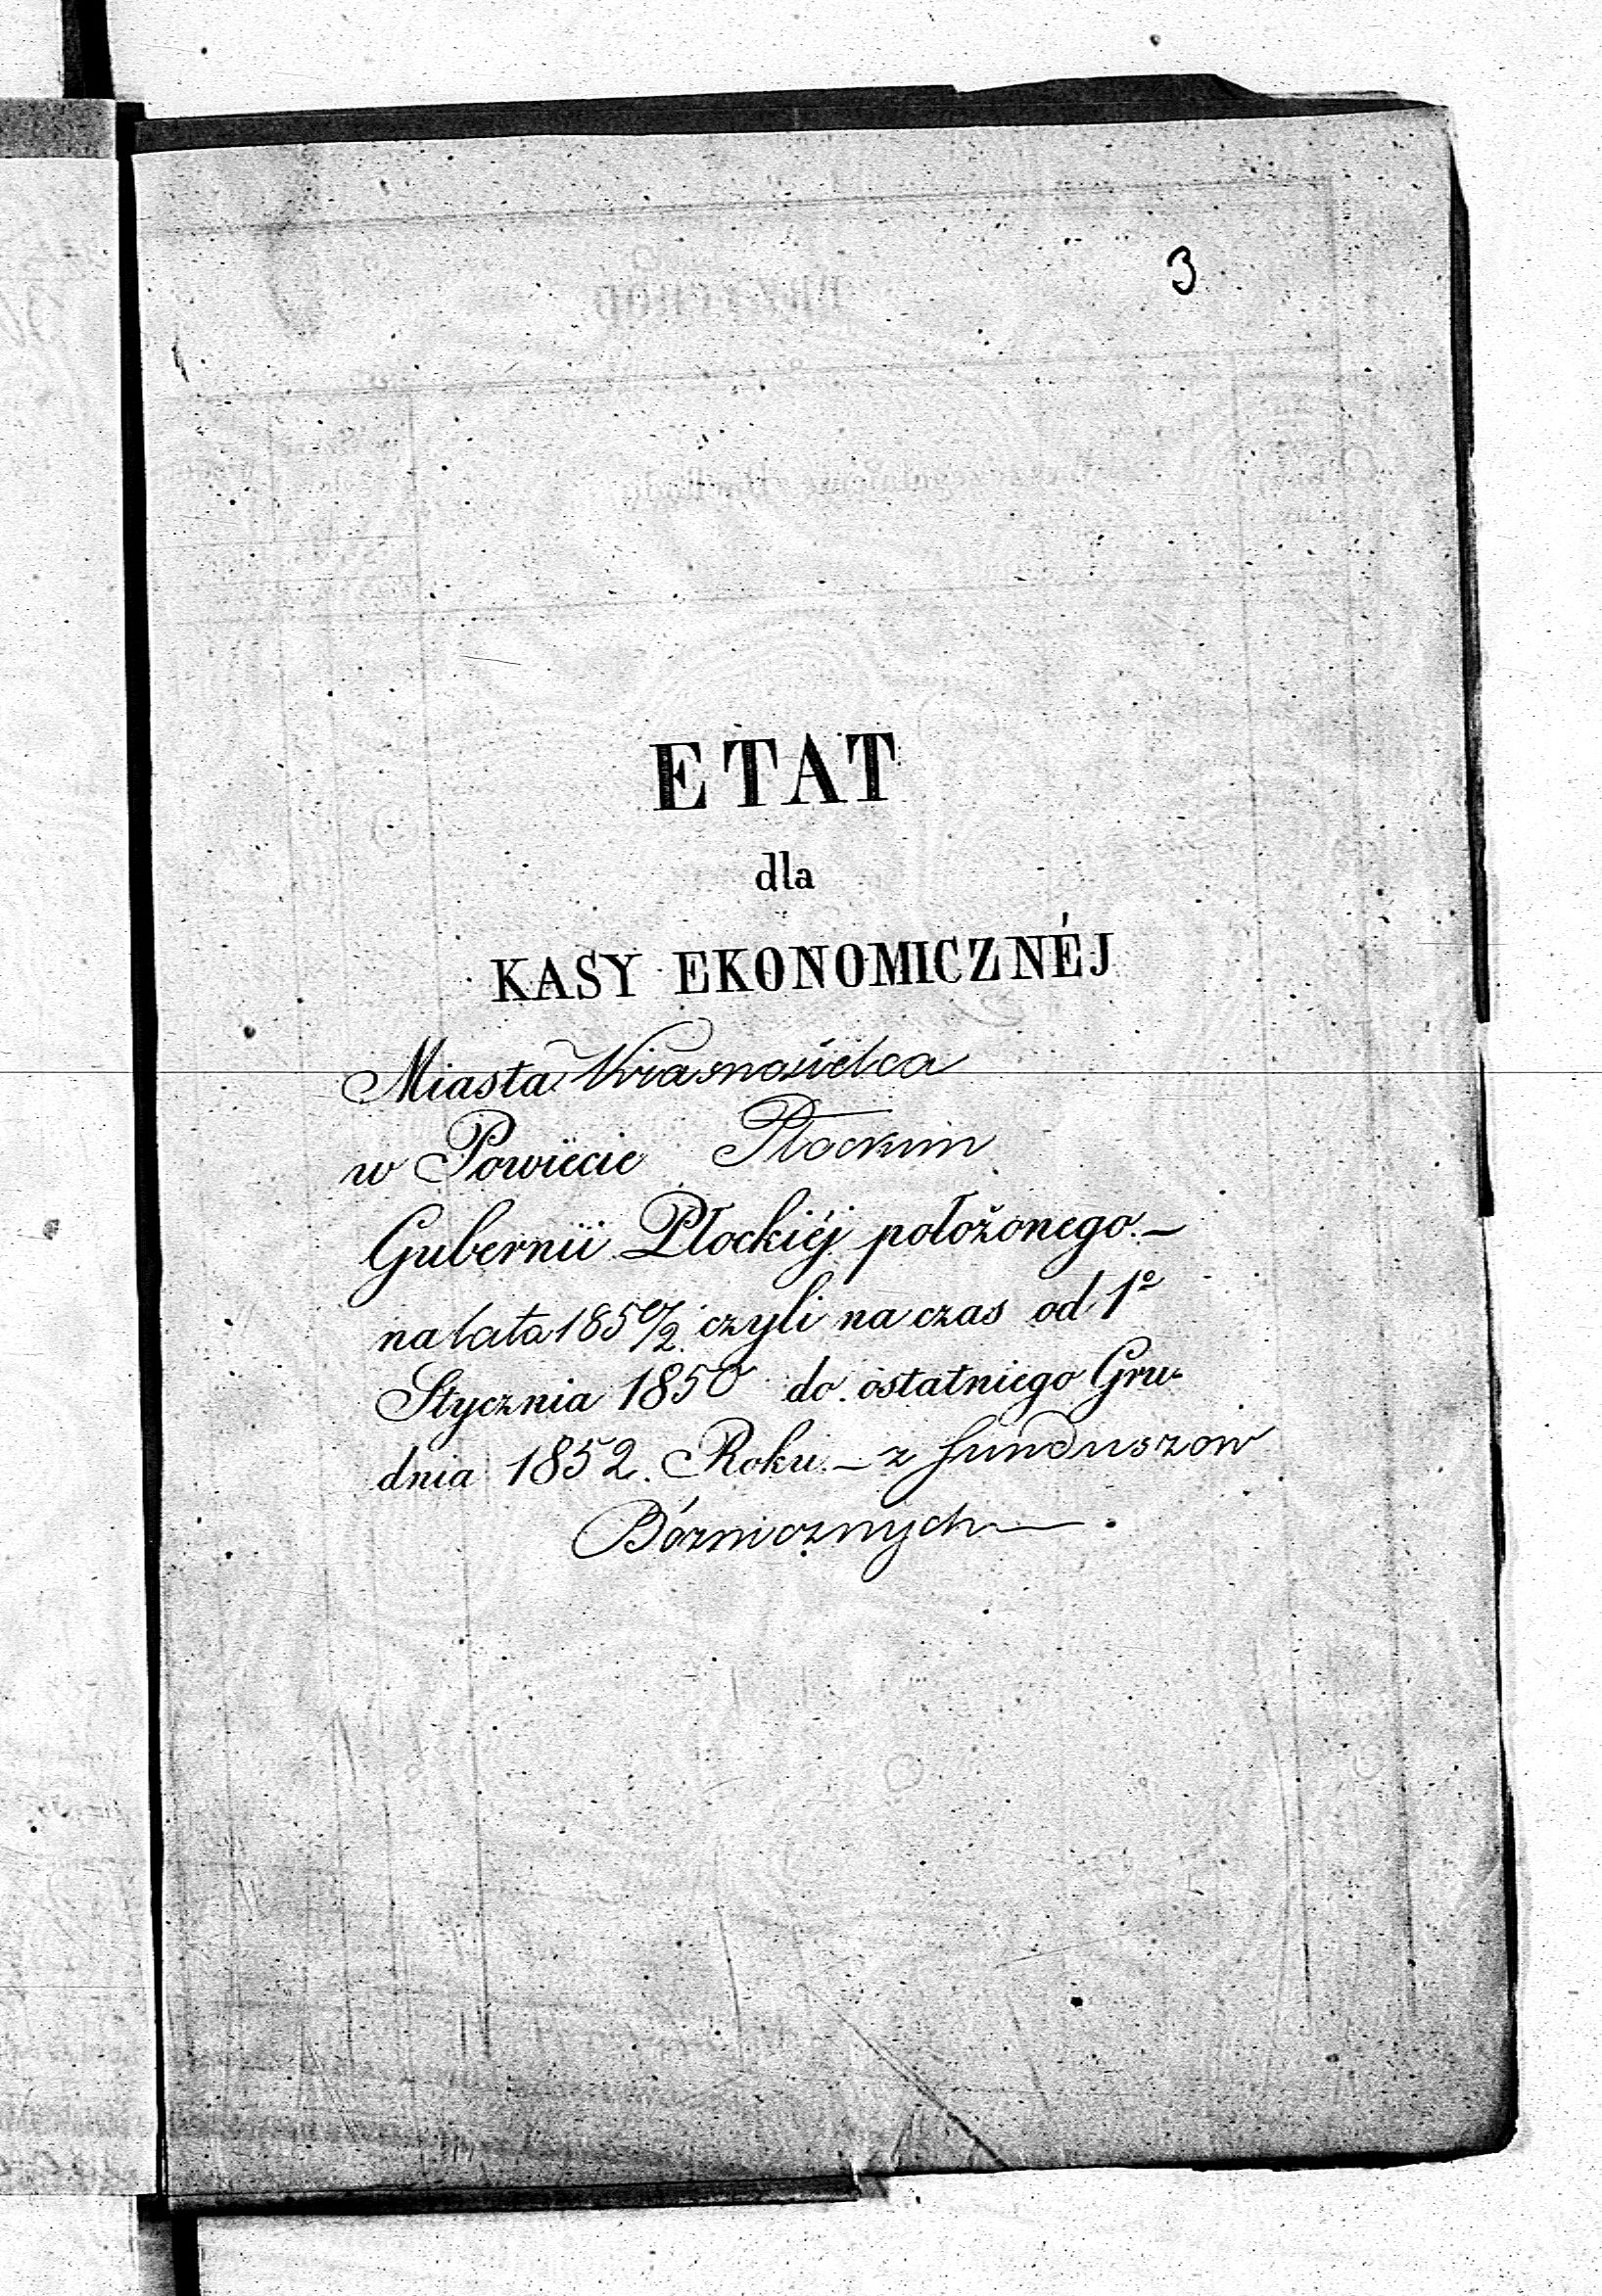 3
ETAT
dla
KASY EKONOMICZNÉJ
Miasta Krasnosielca
w Powiecie Płockim
Gubernii Płockiéj położonego.—
na lata 1850/2. czyli na czas od 1º
Stycznia 1850 do ostatniego Gru-
dnia 1852. Roku.— z funduszow
Bóżnicznych—.